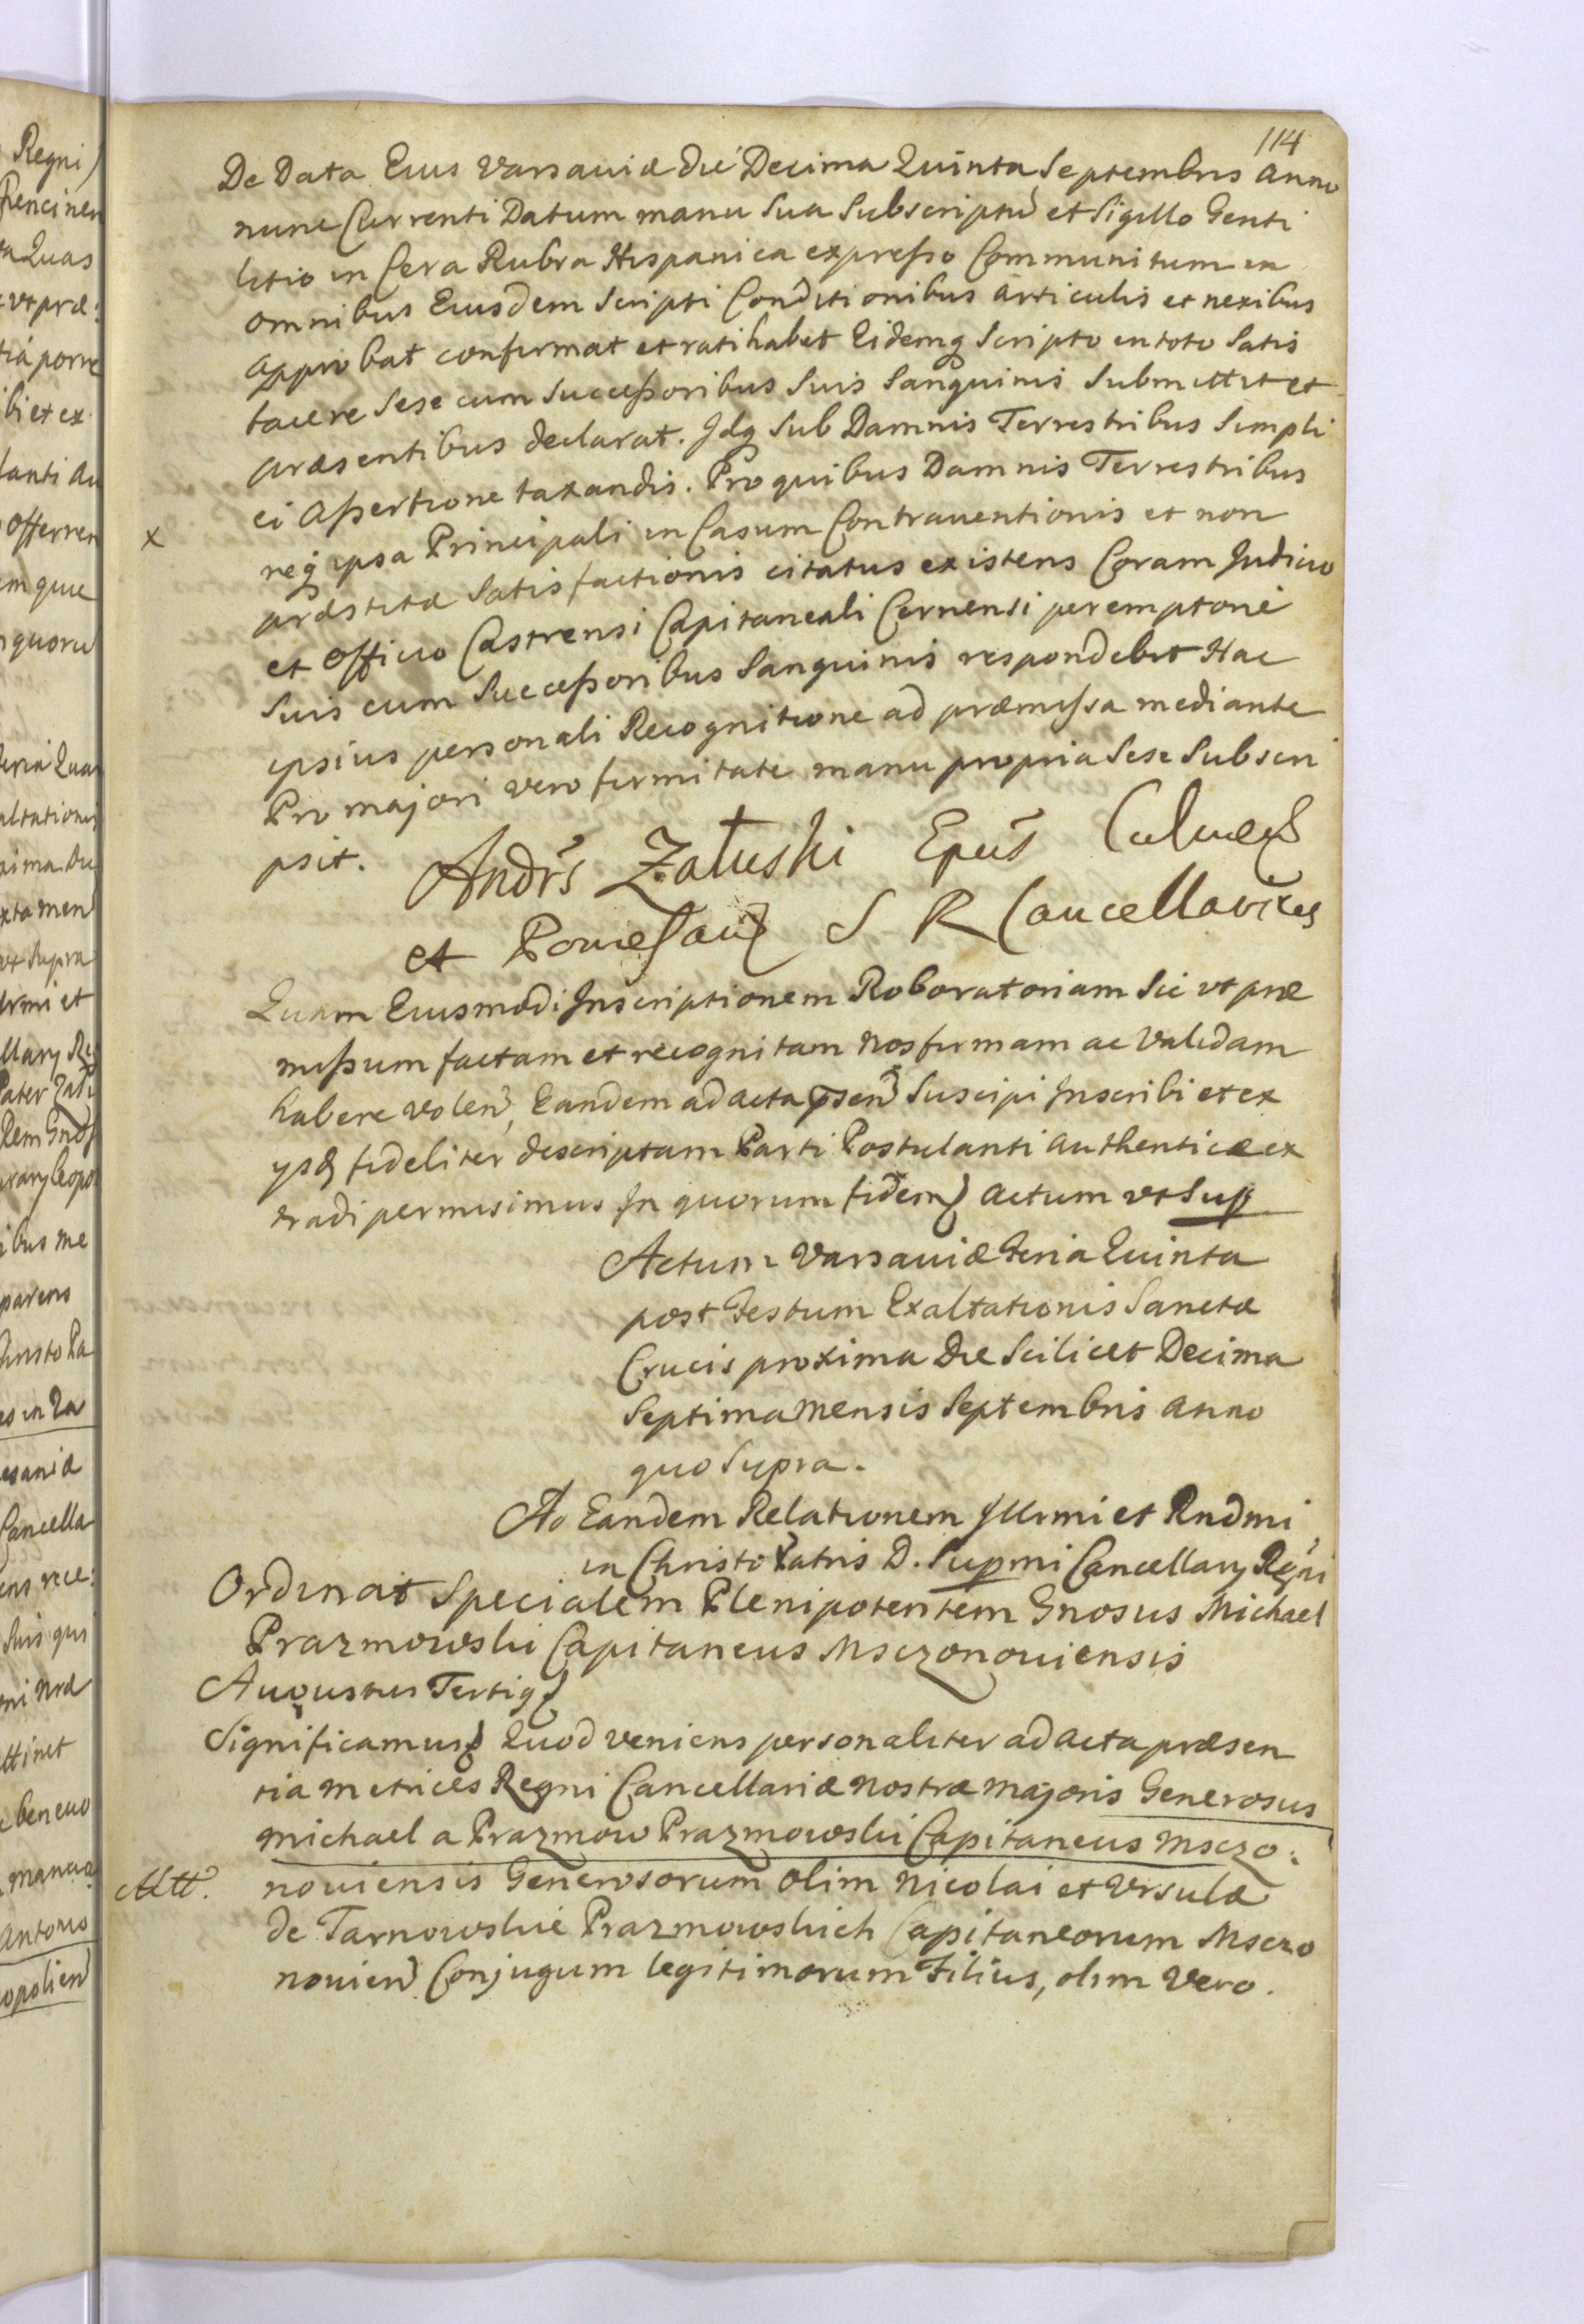 114
De Data Eius Varsaviæ die Decima Quinta Septembris Anno
nunc Currenti Datum manu Sua Subscriptũ et Sigillo Genti
litio in Cera Rubra Hispanica expresso Communitum in
omnibus Eiusdem Scripti Conditionibus articulis et nexibus
approbat confirmat et ratihabet Eidemq Scripto in toto Satis
facere Sese cum Successoribus Suis Sanguinis Submittit et
præsentibus declarat. Idq Sub Damnis Terrestribus Simpli
ci Assertione taxandis. Pro quibus Damnis Terrestribus
x
req ipsa Principali in Casum Contraventionis et non
præstitæ Satisfactionis citatus existens Coram Judicio
et Officio Castrensi Capitaneali Cernensi peremptorie
Suis cum Successoribus Sanguinis respondebit Hac
ipsius personali Recognitione ad præmissa mediante
Pro majori vero firmitate manu propria Sese Subscri
psit.
Andrs Załuski Epus Culmen
et Pomesan S R Cancellarius
Quam Eiusmodi Inscriptionem Roboratoriam Sic vt præ
missum factam et recognitam Nos firmam ac Validam
habere Volen, Eandem ad acta psen Suscipi Inscribi et ex
ysd fideliter descriptam Parti Postulanti authentice ex
tradi permisimus In quorum fidem Actum vt Sup
Actum Varsaviæ Feria Quinta
post Festum Exaltationis Sanctæ
Crucis proxima die Scilicet Decima
Septima Mensis Septembris Anno
quo Supra.
Ad Eandem Relationem Illrmi et Rndmi
in Christo Patris D. Supmi Cancellarij Regni
Ordinat Specialem Plenipotentem Gnosus Michael
Prazmowski Capitaneus Msczonoviensis
Augustus Tertiq
Significamus Quod veniens personaliter ad Acta præsen
tia Metrices Regni Cancellariæ Nostræ Majoris Generosus
Michael a Prazmow Prazmowski Capitaneus Msczo:
noviensis Generosorum olim Nicolai et Vrsulæ
de Tarnowskie Prazmowskich Capitaneorum Msczo
novien Conjugum legitimorum Filius, olim Vero.